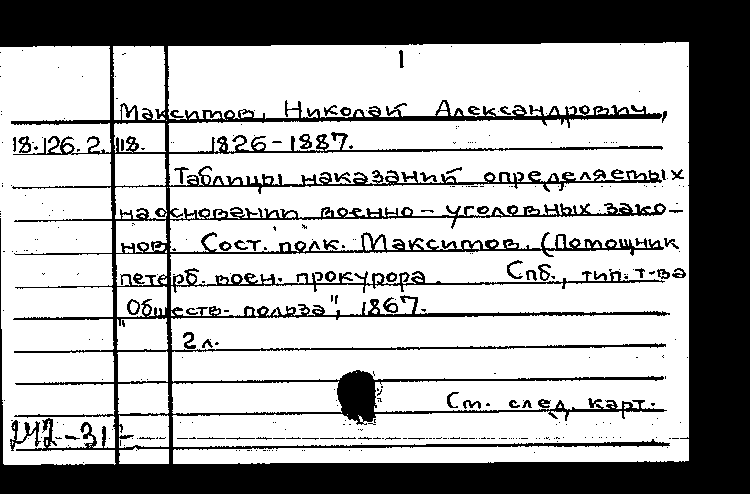 1
Максимов, Николай Александрович,
18.126.2.118. 1826-1887.
Таблицы наказаний определяемых
на основании военно-уголовных зако-
нов. Сост. полк. Максимов. (Помощник
петерб. воен. прокурора. Спб., тип. т-ва
"Обществ. польза", 1867.
2 л.
См. след. карт.
242-31